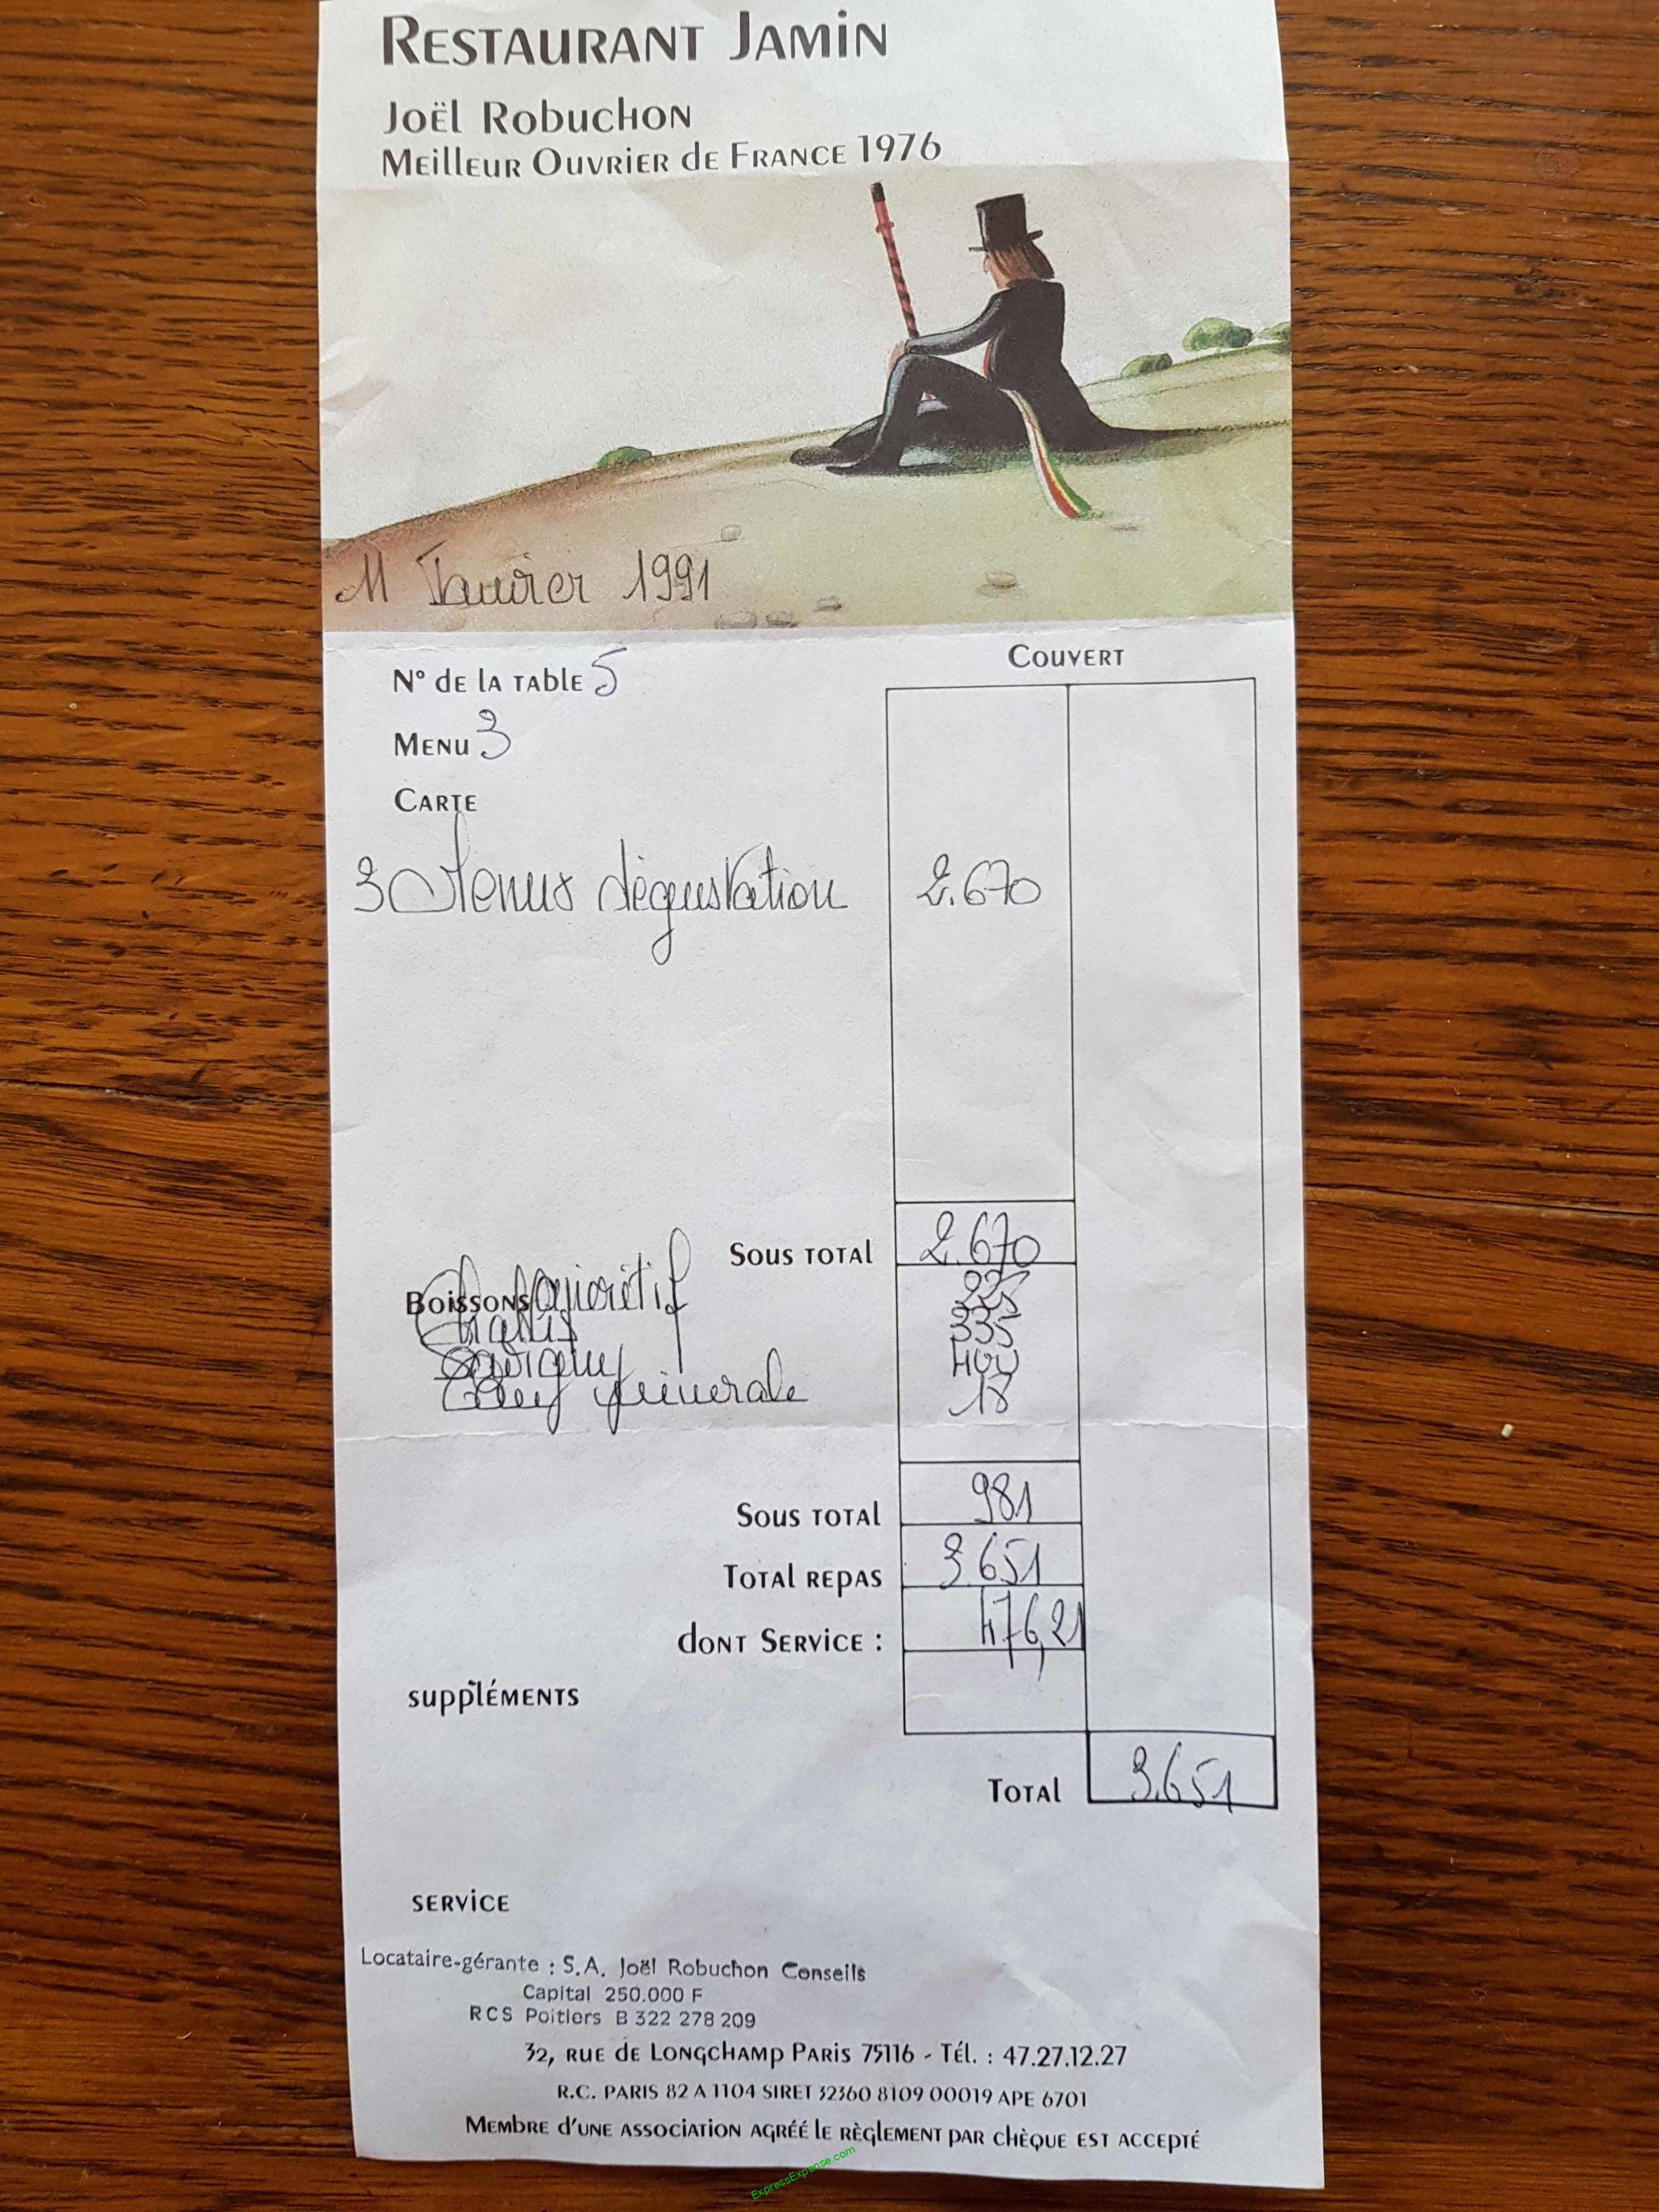 RESTAURANT JAMIN
JOËL ROBUCHON
MEILLEUR OUVRIER DE FRANCE 1976
11 Janvier 1991
N° DE LA TABLE 5
COUVERT
MENU 3
CARTE
3 Menus dégustation 2.670
SOUS TOTAL 2.670
BOISSONS apéritif
Chablis 335
Savigny 400
Eau minerale 18
SOUS TOTAL 981
TOTAL REPAS 3.651
DONT SERVICE : 476,21
SUPPLÉMENTS
TOTAL 3.651
SERVICE
Locataire-gérante : S.A. Joël Robuchon Conseils
Capital 250.000 F
RCS Poitiers B 322 278 209
32, RUE DE LONGCHAMP PARIS 75116 - TÉL. : 47.27.12.27
R.C. PARIS 82 A 1104 SIRET 32360 8109 00019 APE 6701
MEMBRE D'UNE ASSOCIATION AGRÉÉ LE RÈGLEMENT PAR CHÈQUE EST ACCEPTÉ
ExpressExpense.com